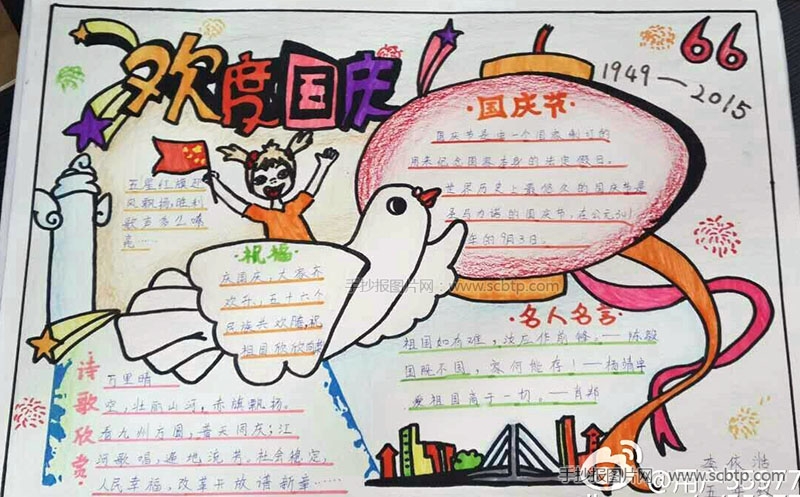 欢度国庆
66
1949—2015
·国庆节·
国庆节是由一个国家制订的
用来纪念国家本身的法定假日。
世界历史上最悠久的国庆节是
圣马力诺的国庆节，在公元301
年的9月3日。
五星红旗迎
风飘扬，胜利
歌声多么嘹
亮……
·祝福·
庆国庆，大家齐
欢乐，五十六个
民族共欢腾，祝
祖国欣欣向荣
手抄报图片网：www.scbtp.com
·名人名言·
祖国如有难，汝应作前锋。——陈毅
国既不国，家何能存！——杨靖宇
爱祖国高于一切。——肖邦
诗歌欣赏
万里晴
空，壮丽山河，赤旗飘扬。
看九州方圆，普天同庆；江
河歌唱，遍地流芳。社会稳定，
人民幸福，改革开放谱新章……
手抄报图片网：www.scbtp.com